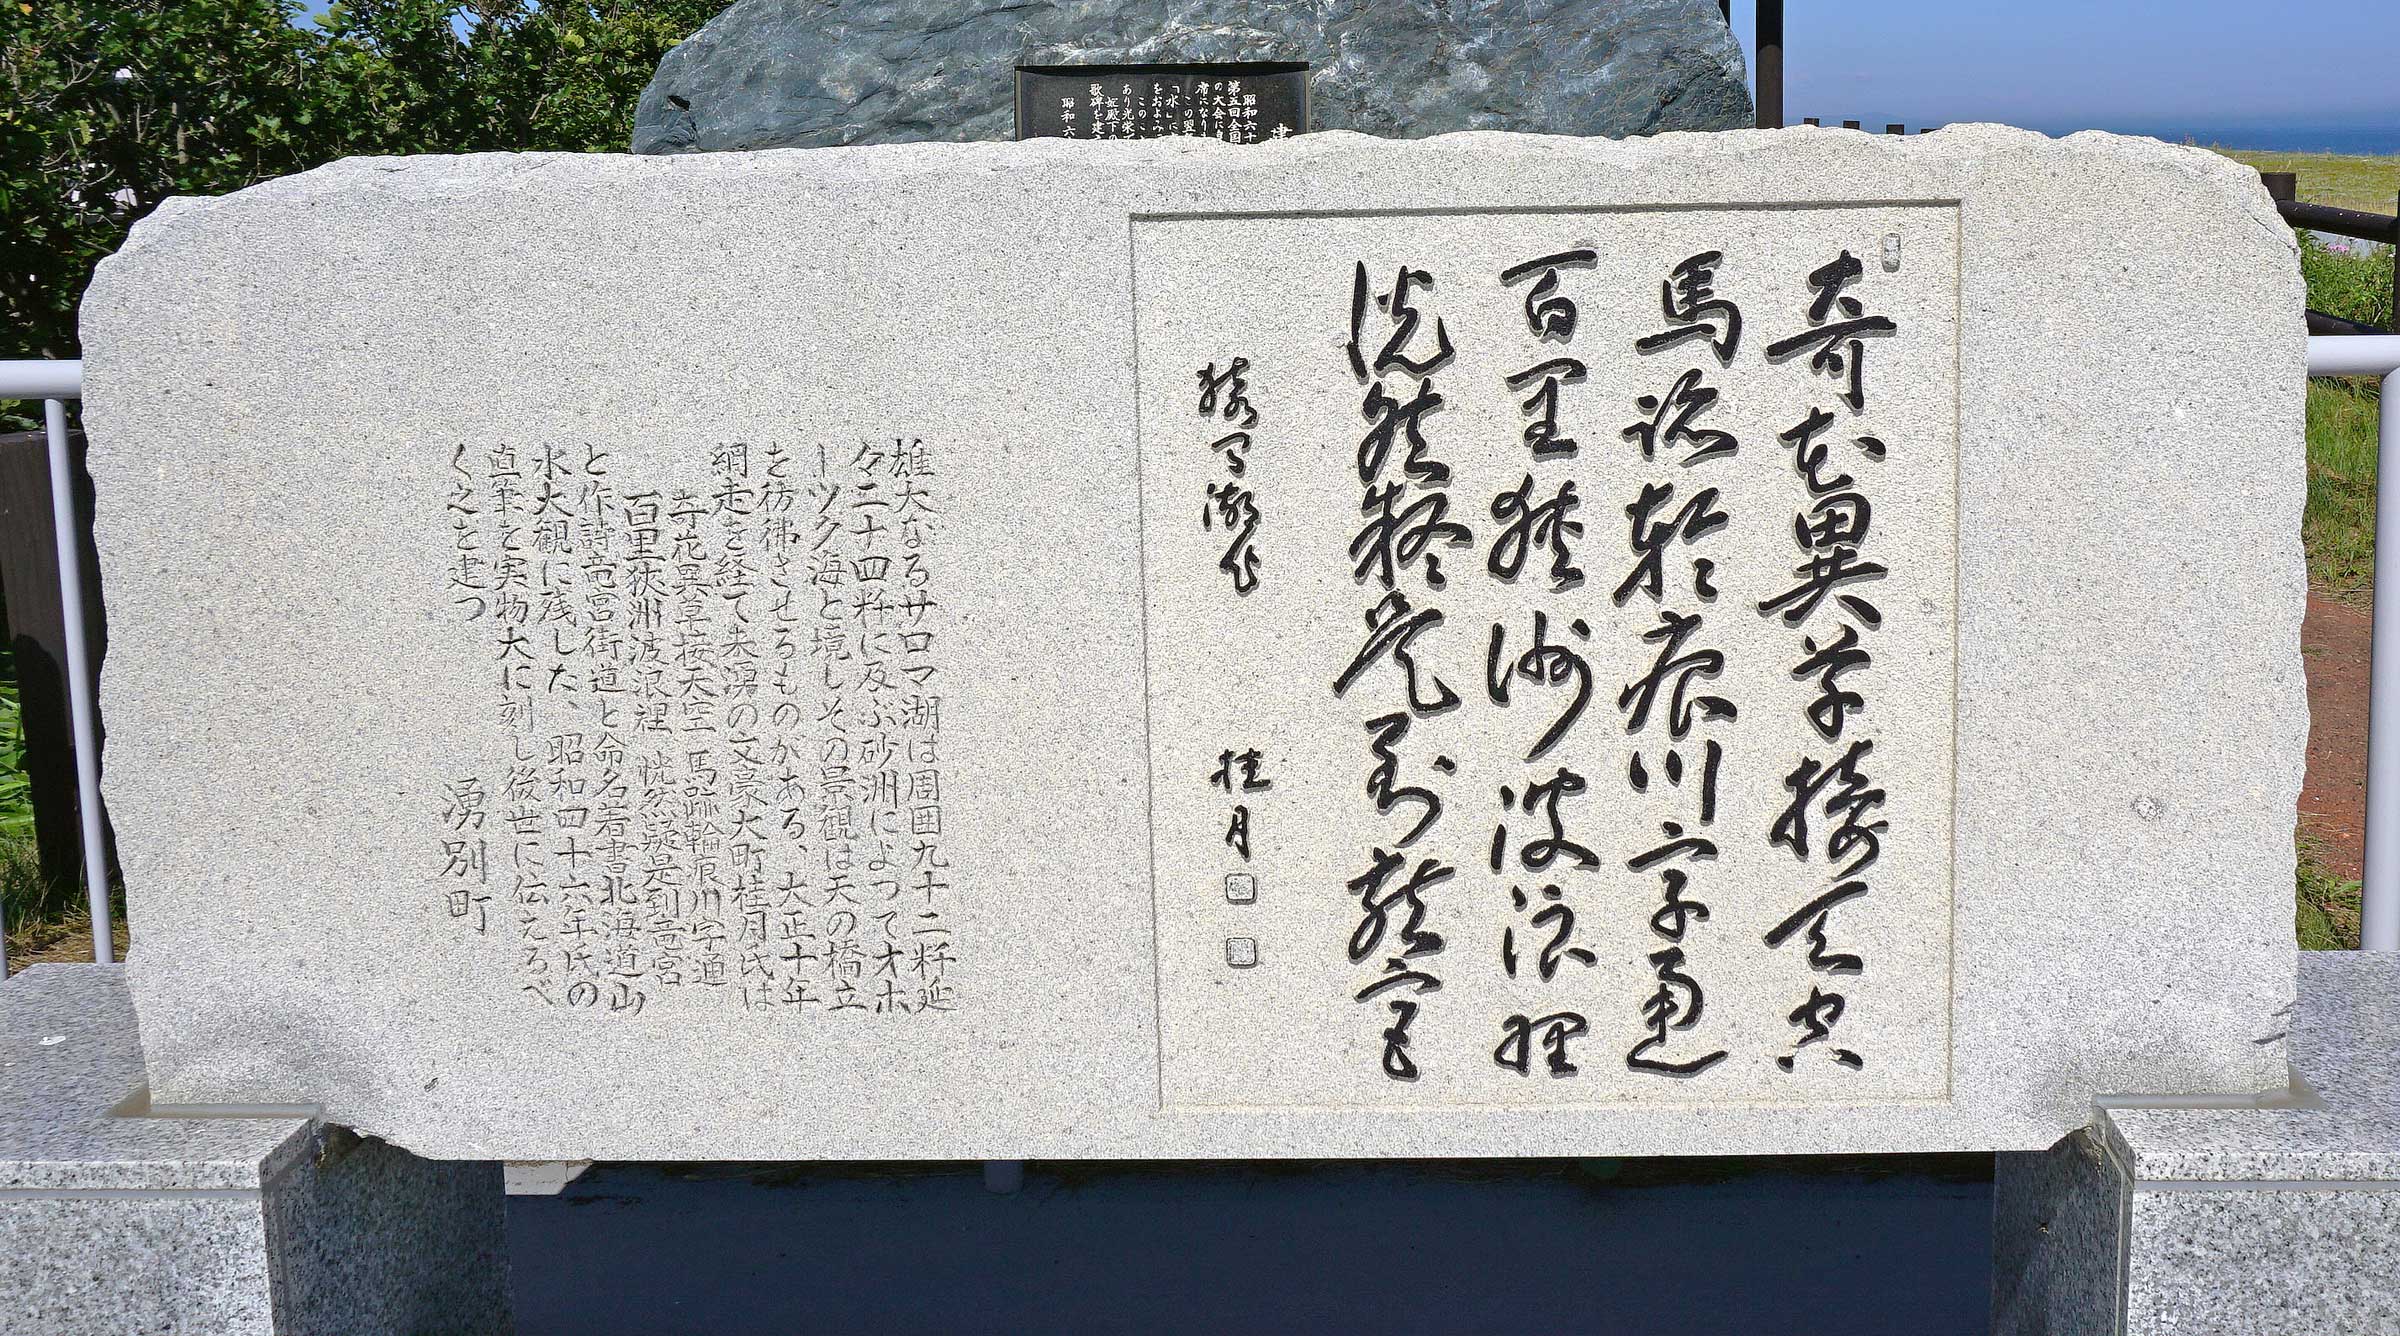 奇花異草接天空
馬跡輪痕川字通
百里狭洲波浪裡
恍然疑是到龍宮
猿间湖作 桂月
雄大なるサロマ湖は周囲九十二粁延
々二十四粁に及ぶ砂洲によつてオホ
ーツク海と境しその景観は天の橋立
を彷彿させるものがある、大正十年
網走を経て来湧の文豪大町桂月氏は
奇花異草接天空 馬跡輪痕川字通
百里狭洲波浪裡 恍然疑是到竜宮
と作詩竜宮街道と命名着書北海道山
水大観に残した、昭和四十六年氏の
直筆を実物大に刻し後世に伝えるべ
く之を建つ
湧別町
昭和六十
第五回全国
の大会に
席になり
この
「水」に
をおよみ
このこ
あり光栄
妃殿下の
歌碑を建
昭和六